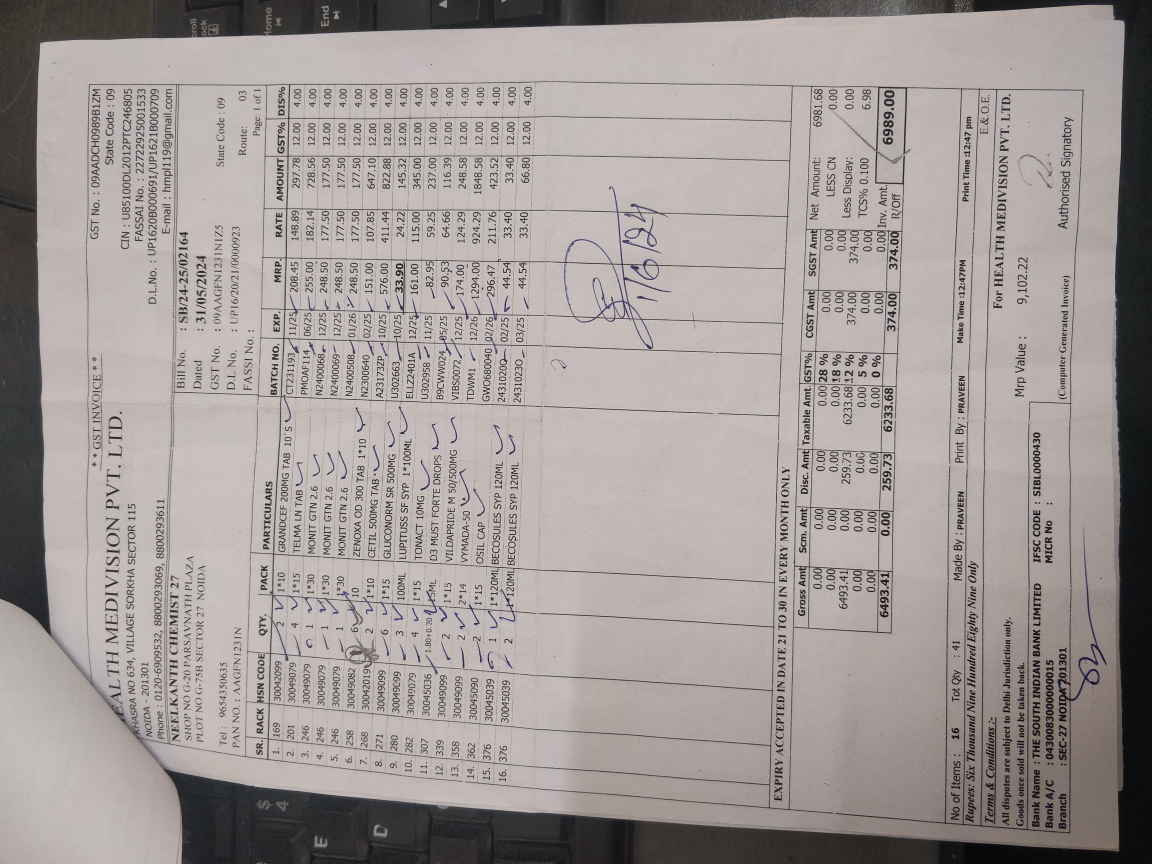 * * GST INVOICE * *
HEALTH MEDIVISION PVT. LTD.
KHASRA NO 634, VILLAGE SORKHA SECTOR 115
NOIDA - 201301
Phone : 0120-6909532, 8800293069, 8800293611
GST No. : 09AADCH0989B1ZM
State Code : 09
CIN : U85100DL2012PTC246805
FASSAI No. : 22722925001533
D.L.No. : UP1620B000691/UP1621B000709
E-mail : hmpl119@gmail.com
NEELKANTH CHEMIST 27
SHOP NO G-20 PARSAVNATH PLAZA
PLOT NO G-75B SECTOR 27 NOIDA
Tel : 9654350635
PAN NO : AAGFN1231N
Bill No. : SB/24-25/02164
Dated : 31/05/2024
GST No. : 09AAGFN1231N1Z5 State Code : 09
D.L No. : UP16/20/21/0000923 Route: 03
FASSI No. : Page: 1 of 1
SR. RACK HSN CODE QTY. PACK PARTICULARS BATCH NO. EXP. MRP. RATE AMOUNT GST% DIS%
1. 169 30042099 2 1*10 GRANDCEF 200MG TAB 10`S CT231193 11/25 208.45 148.89 297.78 12.00 4.00
2. 201 30049079 4 1*15 TELMA LN TAB PMOAF114 06/25 255.00 182.14 728.56 12.00 4.00
3. 246 30049079 1 1*30 MONIT GTN 2.6 N2400068 12/25 248.50 177.50 177.50 12.00 4.00
4. 246 30049079 1 1*30 MONIT GTN 2.6 N2400069 12/25 248.50 177.50 177.50 12.00 4.00
5. 246 30049079 1 1*30 MONIT GTN 2.6 N2400508 01/26 248.50 177.50 177.50 12.00 4.00
6. 258 30049082 6 10 ZENOXA OD 300 TAB 1*10 N2300640 02/25 151.00 107.85 647.10 12.00 4.00
7. 268 30042019 2 1*10 CETIL 500MG TAB A23173ZP 10/25 576.00 411.44 822.88 12.00 4.00
8. 271 30049099 6 1*15 GLUCONORM SR 500MG U302663 10/25 33.90 24.22 145.32 12.00 4.00
9. 280 30049099 3 100ML LUPITUSS SF SYP 1*100ML ELZ2401A 12/25 161.00 115.00 345.00 12.00 4.00
10. 282 30049079 4 1*15 TONACT 10MG U302958 11/25 82.95 59.25 237.00 12.00 4.00
11. 307 30045036 1.80+0.20 15ML D3 MUST FORTE DROPS B9CWW024 05/25 90.53 64.66 116.39 12.00 4.00
12. 339 30049099 2 1*15 VILDAPRIDE M 50/500MG VIBS0072 12/25 174.00 124.29 248.58 12.00 4.00
13. 358 30049099 2 2*14 VYMADA-50 TDWM1 12/26 1294.00 924.29 1848.58 12.00 4.00
14. 362 30045090 2 1*15 OSIL CAP GWO680040 02/26 296.47 211.76 423.52 12.00 4.00
15. 376 30045039 1 1*120ML BECOSULES SYP 120ML 2431020 02/25 44.54 33.40 33.40 12.00 4.00
16. 376 30045039 2 1*120ML BECOSULES SYP 120ML 2431023 03/25 44.54 33.40 66.80 12.00 4.00
1/6/24
EXPIRY ACCEPTED IN DATE 21 TO 30 IN EVERY MONTH ONLY
Gross Amt Scm. Amt Disc. Amt Taxable Amt. GST% CGST Amt SGST Amt
0.00 0.00 0.00 0.00 28 % 0.00 0.00
0.00 0.00 0.00 0.00 18 % 0.00 0.00
6493.41 0.00 259.73 6233.68 12 % 374.00 374.00
0.00 0.00 0.00 0.00 5 % 0.00 0.00
0.00 0.00 0.00 0.00 0 % 0.00 0.00
6493.41 0.00 259.73 6233.68 374.00 374.00
Net Amount: 6981.68
LESS CN 0.00
Less Display: 0.00
TCS% 0.100 6.98
Inv. Amt. R/Off 6989.00
No of Items : 16 Tot Qty : 41 Made By : PRAVEEN Print By : PRAVEEN Make Time :12:47PM Print Time :12:47 pm
Rupees: Six Thousand Nine Hundred Eighty Nine Only E.& O.E.
Terms & Conditions :-
All disputes are subject to Delhi Jurisdiction only.
Goods once sold will not be taken back.
For HEALTH MEDIVISION PVT. LTD.
Mrp Value : 9,102.22
Bank Name : THE SOUTH INDIAN BANK LIMITED IFSC CODE : SIBL0000430
Bank A/C : 0430083000000015 MICR No :
Branch : SEC-27 NOIDA 201301
(Computer Generated Invoice) Authorised Signatory